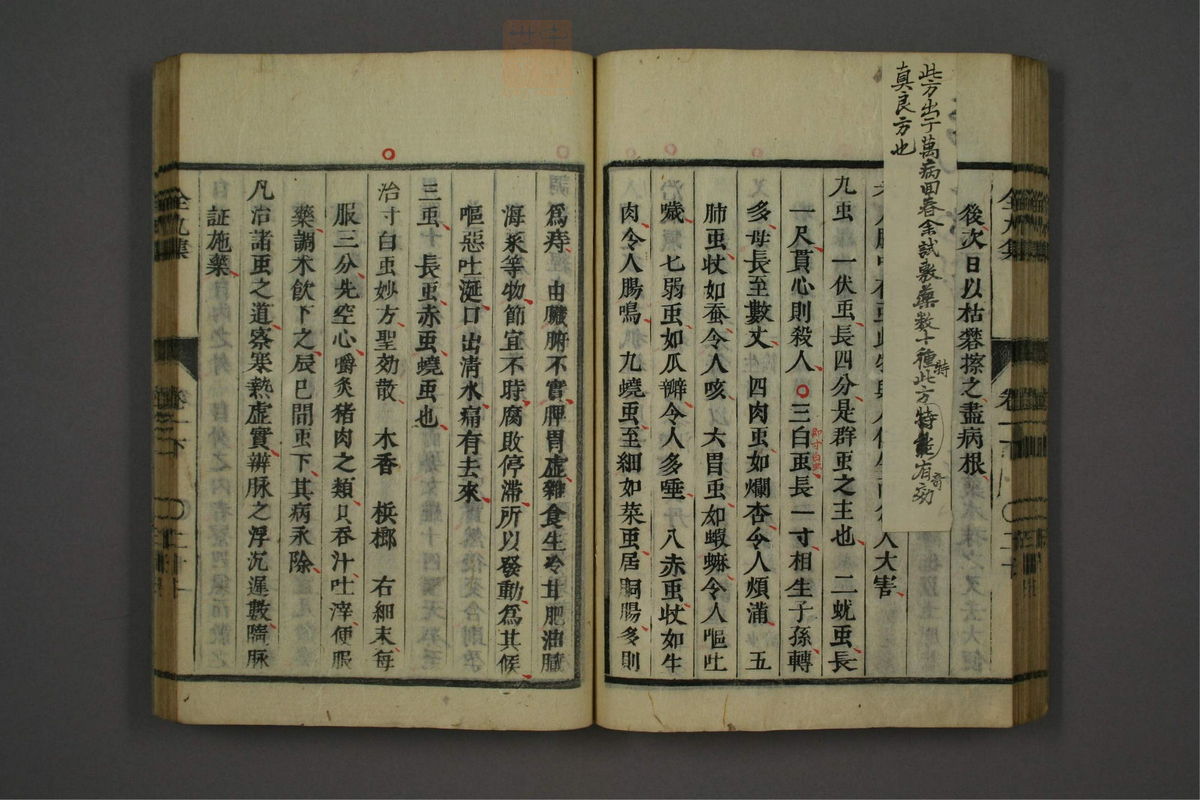 此方出于萬病回春余試敷藥數十種此方特能有効
特
奇
真良方也
後次日以枯礬擦之盡病根
人大害
九虫　一伏虫長四分是群虫之主也　二蚘虫長
一尺貫心則殺人〇三白虫長一寸相生子孫轉
即寸白虫
多母長至數丈　四肉虫如爛杏令人煩滿　五
肺虫狀如蚕令人咳　六胃虫如蝦蟆令人嘔吐
噦　七弱虫如瓜瓣令人多唾　八赤虫狀如生
肉令人腸鳴　九蟯虫至細如菜虫居胴腸多則
爲痔　由臟腑不實脾胃虛雜食生冷甘肥油膩
海菜等物節宜不時腐敗停滯所以發動爲其候
嘔惡吐涎口出清水痛有去來
三虫　長虫赤虫蟯虫也
治寸白虫妙方聖効散　木香　梹榔　右細末每
服三分先空心嚼炙猪肉之類只吞汁吐滓便服
藥調木飲下之辰巳間虫下其病永除
凡治諸虫之道察寒熱虛實辨脉之浮沉遲數隨脉
証施藥
全九集
卷一下
全九集
卷一下